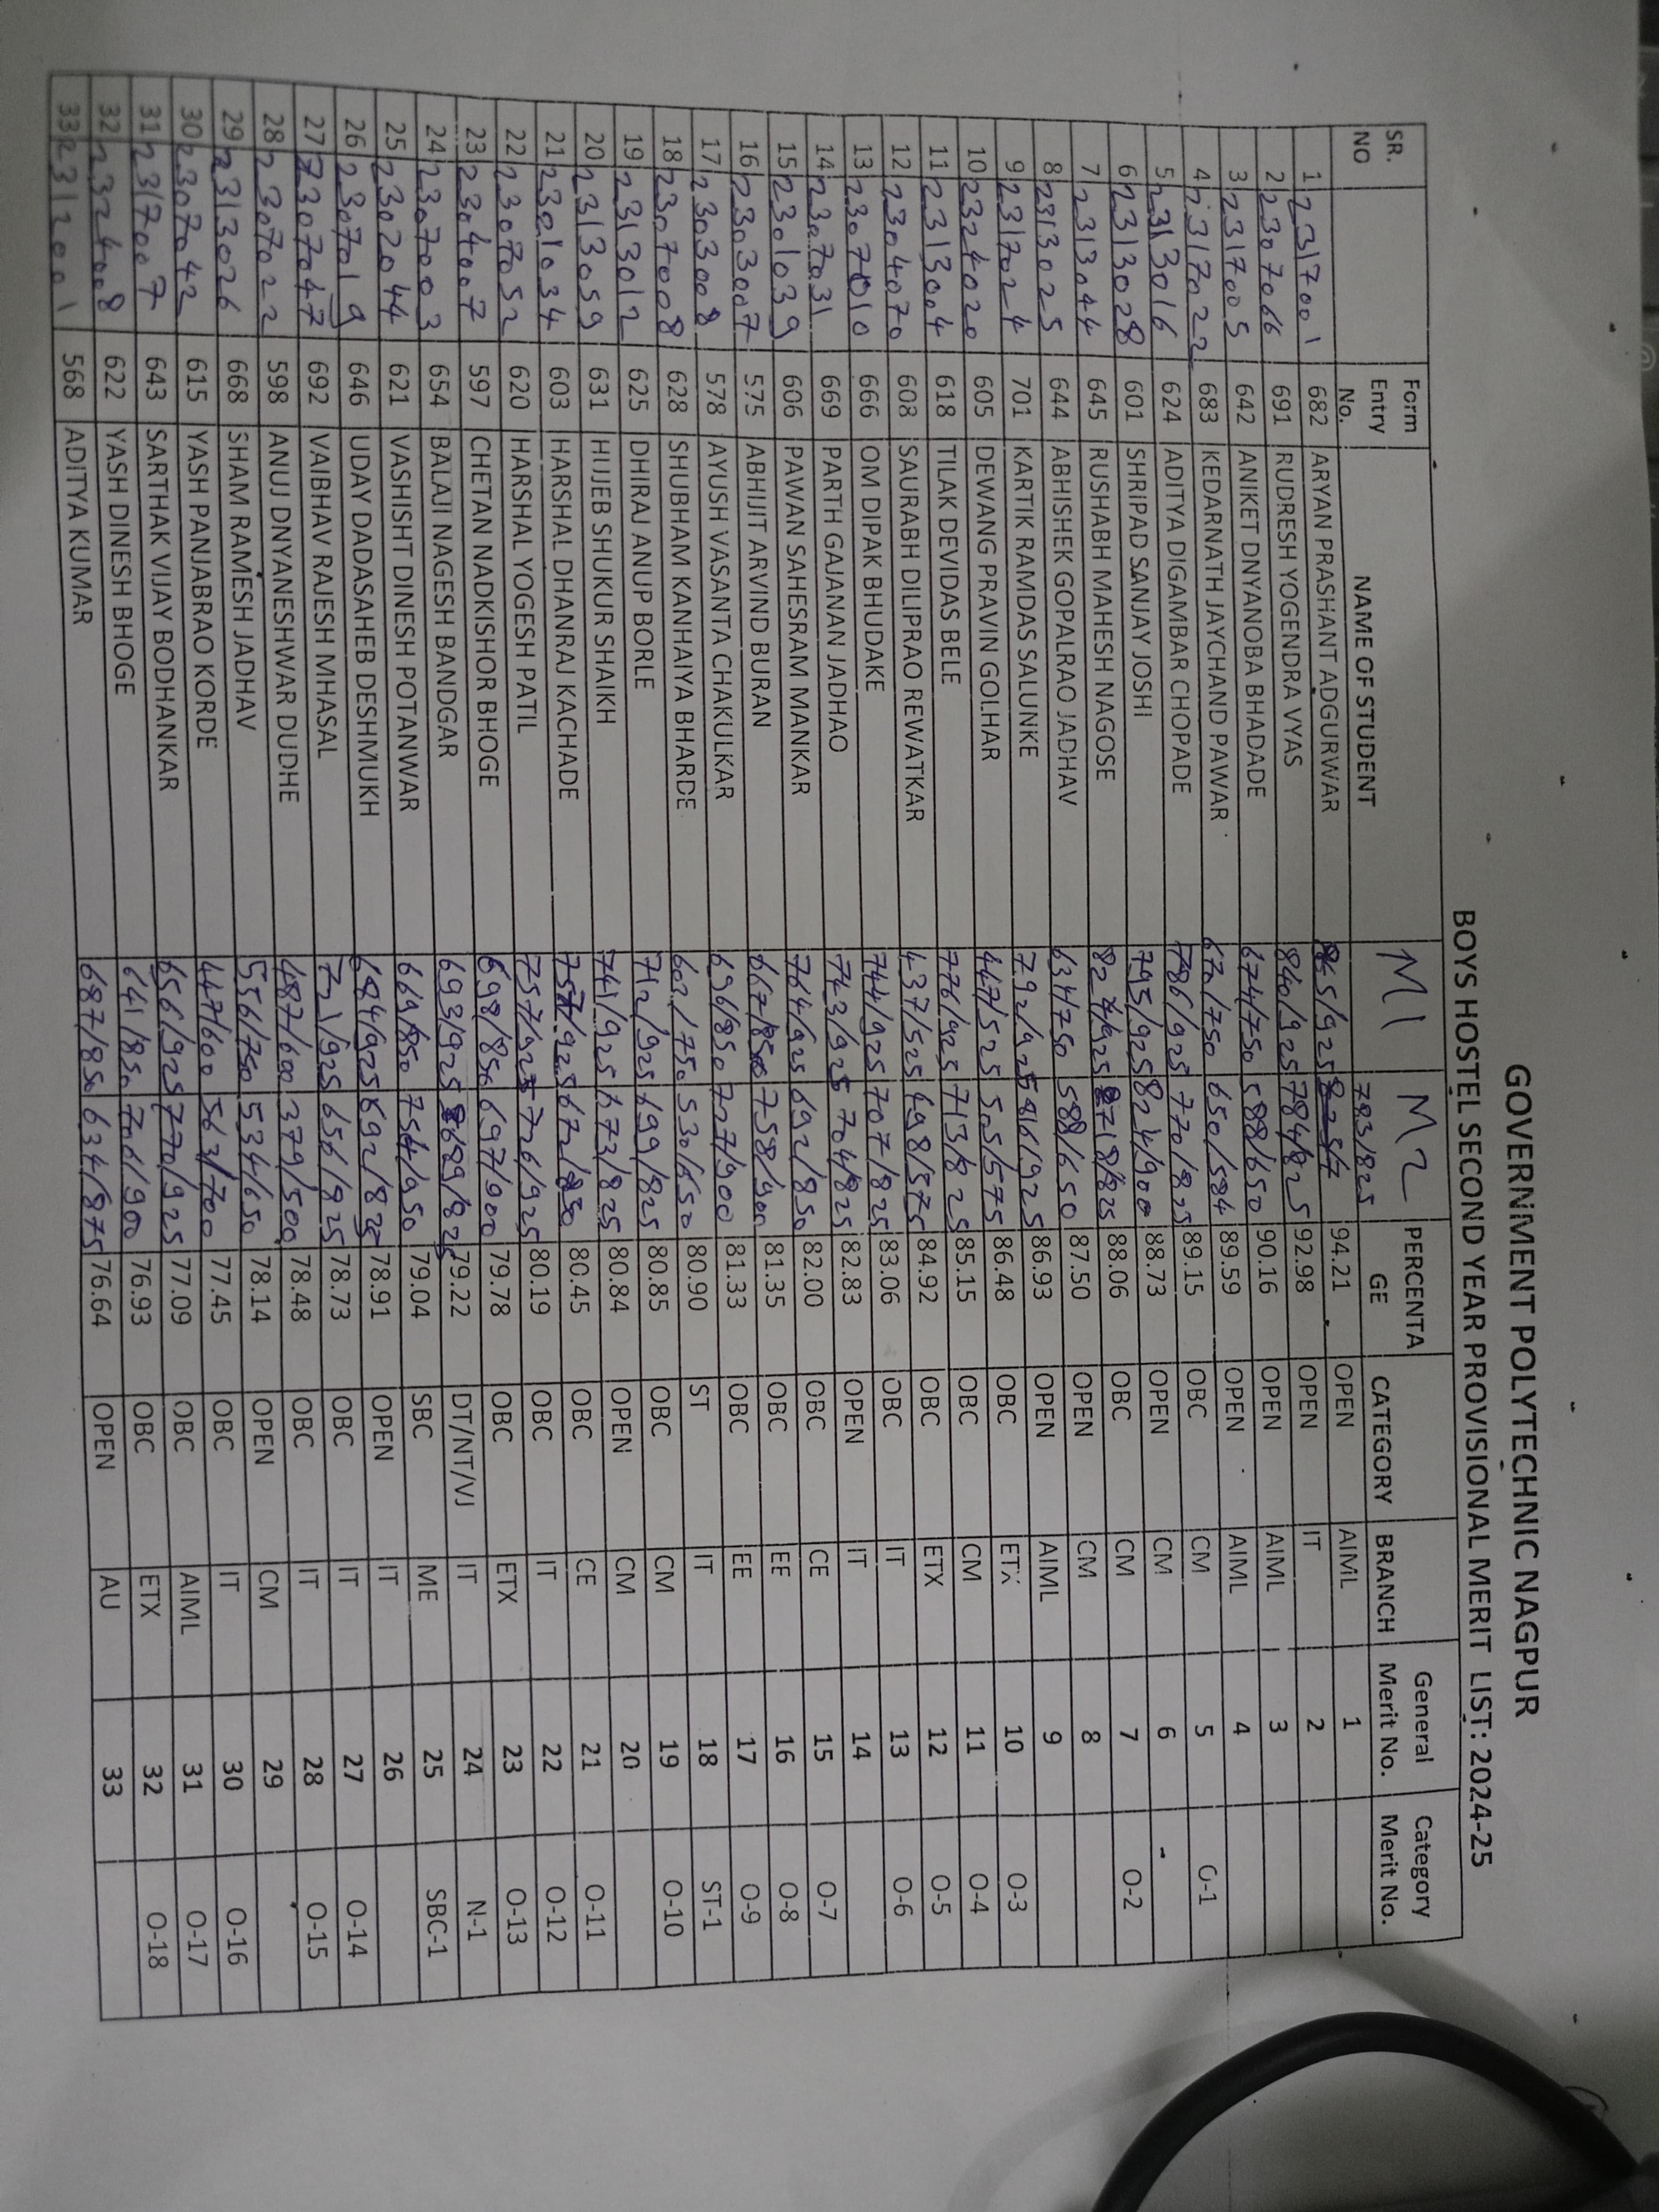 GOVERNMENT POLYTECHNIC NAGPUR
BOYS HOSTEL SECOND YEAR PROVISIONAL MERIT LIST: 2024-25
SR. NO Form Entry No. NAME OF STUDENT M1 M2 PERCENTAGE CATEGORY BRANCH General Merit No. Category Merit No.
783/825
1 2317001 682 ARYAN PRASHANT ADGURWAR 865/925 825/7 94.21 OPEN AIML 1
2 2307066 691 RUDRESH YOGENDRA VYAS 840/925 784/825 92.98 OPEN IT 2
3 2317005 642 ANIKET DNYANOBA BHADADE 674/750 588/650 90.16 OPEN AIML 3
4 2317022 683 KEDARNATH JAYCHAND PAWAR 670/750 650/584 89.59 OPEN AIML 4
5 2313016 624 ADITYA DIGAMBAR CHOPADE 786/925 770/825 89.15 OBC CM 5 O-1
6 2313028 601 SHRIPAD SANJAY JOSHI 795/925 824/900 88.73 OPEN CM 6 -
7 2313044 645 RUSHABH MAHESH NAGOSE 824/925 718/825 88.06 OBC CM 7 O-2
8 2313025 644 ABHISHEK GOPALRAO JADHAV 634/750 588/650 87.50 OPEN CM 8
9 2317024 701 KARTIK RAMDAS SALUNKE 792/925 816/925 86.93 OPEN AIML 9
10 2324020 605 DEWANG PRAVIN GOLHAR 447/525 505/575 86.48 OBC ETX 10 O-3
11 2313004 618 TILAK DEVIDAS BELE 776/925 713/825 85.15 OBC CM 11 O-4
12 2304070 608 SAURABH DILIPRAO REWATKAR 437/525 498/575 84.92 OBC ETX 12 O-5
13 2307010 666 OM DIPAK BHUDAKE 744/925 707/825 83.06 OBC IT 13 O-6
14 2307031 669 PARTH GAJANAN JADHAO 743/925 704/825 82.83 OPEN IT 14
15 2301039 606 PAWAN SAHESRAM MANKAR 764/925 692/850 82.00 OBC CE 15 O-7
16 2303007 575 ABHIJIT ARVIND BURAN 667/850 758/900 81.35 OBC EE 16 O-8
17 2303008 578 AYUSH VASANTA CHAKULKAR 696/850 727/900 81.33 OBC EE 17 O-9
18 2307008 628 SHUBHAM KANHAIYA BHARDE 602/750 530/650 80.90 ST IT 18 ST-1
19 2313012 625 DHIRAJ ANUP BORLE 712/925 699/825 80.85 OBC CM 19 O-10
20 2313059 631 HUJEB SHUKUR SHAIKH 741/925 673/825 80.84 OPEN CM 20
21 2301034 603 HARSHAL DHANRAJ KACHADE 757/925 672/850 80.45 OBC CE 21 O-11
22 2307052 620 HARSHAL YOGESH PATIL 757/925 726/925 80.19 OBC IT 22 O-12
23 2304007 597 CHETAN NADKISHOR BHOGE 698/850 697/900 79.78 OBC ETX 23 O-13
24 2307003 654 BALAJI NAGESH BANDGAR 693/925 689/825 79.22 DT/NT/VJ IT 24 N-1
25 2302044 621 VASHISHT DINESH POTANWAR 669/850 754/950 79.04 SBC ME 25 SBC-1
26 2307019 646 UDAY DADASAHEB DESHMUKH 684/925 692/825 78.91 OPEN IT 26
27 2307047 692 VAIBHAV RAJESH MHASAL 721/925 656/825 78.73 OBC IT 27 O-14
28 2307022 598 ANUJ DNYANESHWAR DUDHE 487/600 379/500 78.48 OBC IT 28 O-15
29 2313026 668 SHAM RAMESH JADHAV 556/750 534/650 78.14 OPEN CM 29
30 2307042 615 YASH PANJABRAO KORDE 447/600 563/700 77.45 OBC IT 30 O-16
31 2317007 643 SARTHAK VIJAY BODHANKAR 656/925 770/925 77.09 OBC AIML 31 O-17
32 2324008 622 YASH DINESH BHOGE 641/850 706/900 76.93 OBC ETX 32 O-18
33 2312001 568 ADITYA KUMAR 687/850 634/875 76.64 OPEN AU 33